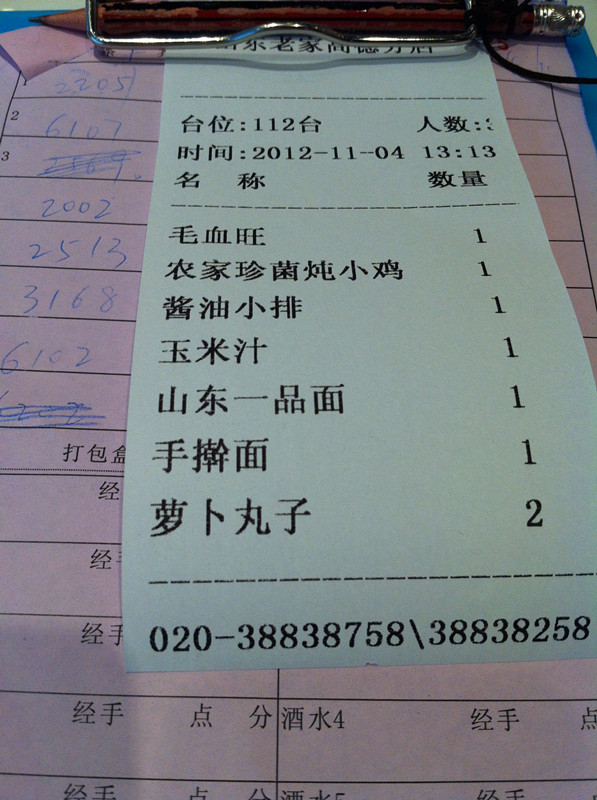 山东老家高德分店
台位:112台 人数:
时间:2012-11-04 13:13
名 称 数量
毛血旺 1
农家珍菌炖小鸡 1
酱油小排 1
玉米汁 1
山东一品面 1
手擀面 1
萝卜丸子 2
020-38838758\38838258
1 2205
2 6107
3
2002
2513
3168
6102
打包盒
经
经
经手
经手 点 分 酒水4 经手 点
经手 点 分 酒水5 经手